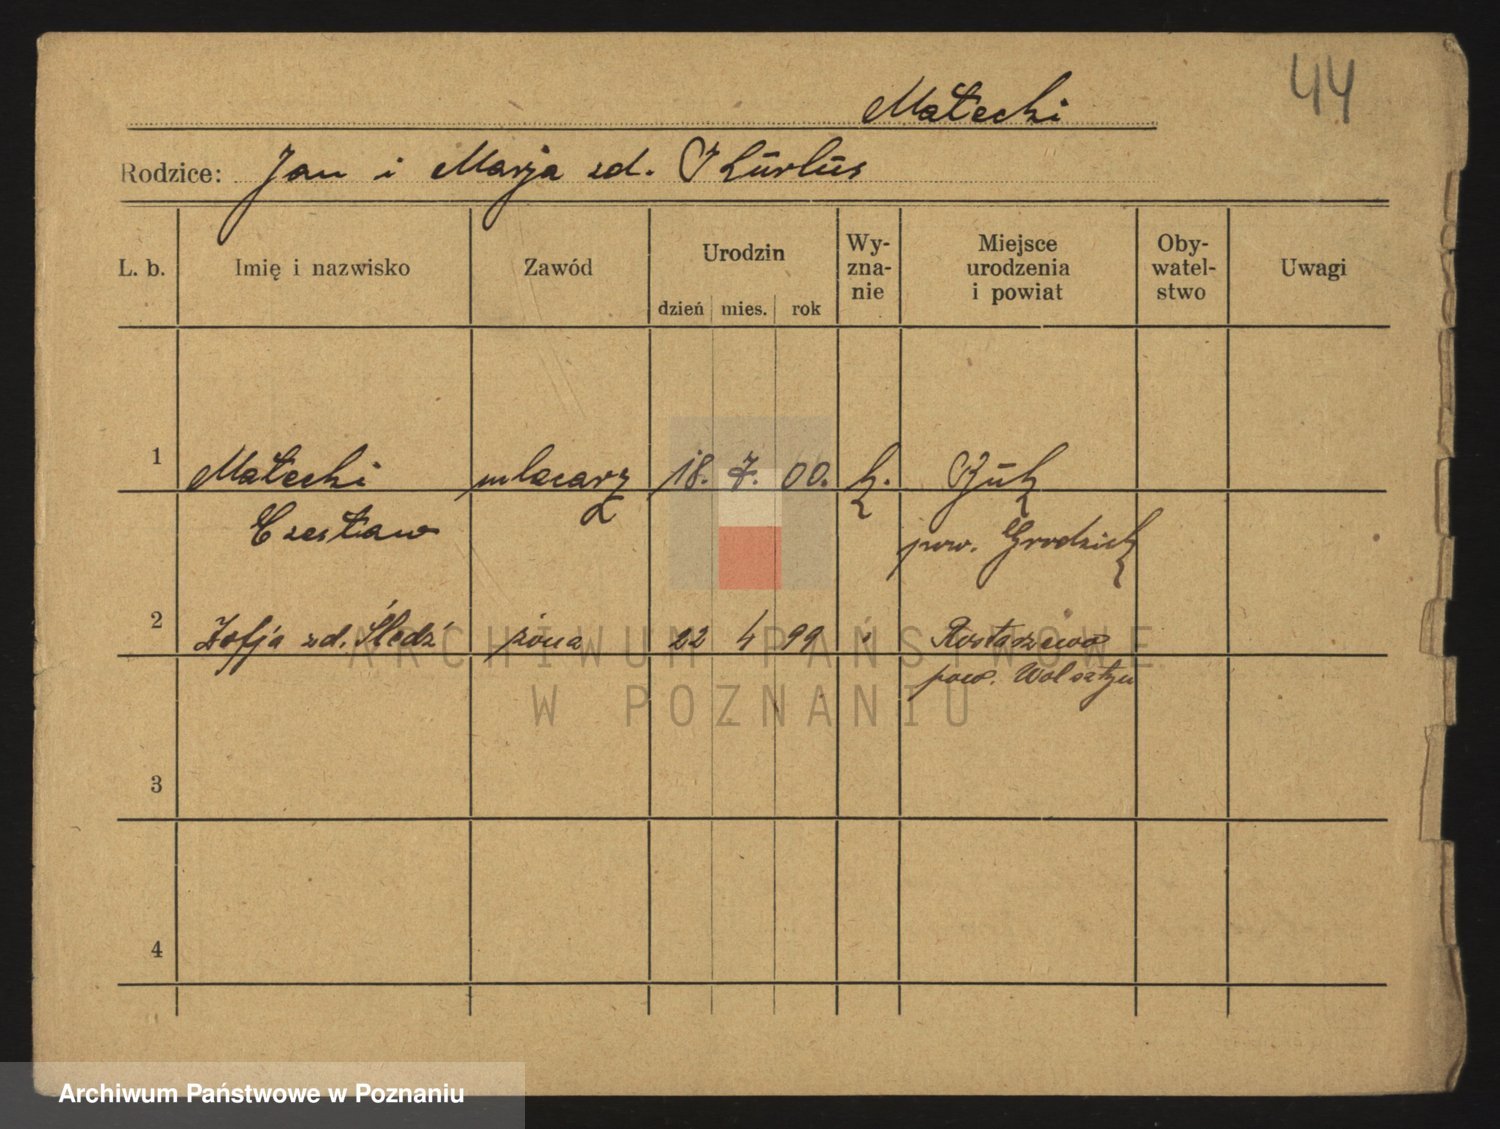 44
Małecki
Rodzice: Jan i Marja zd. Kurlus
L. b. Imię i nazwisko Zawód Urodzin dzień mies. rok Wy-zna-nie Miejsce urodzenia i powiat Oby-watel-stwo Uwagi
1 Małecki mleczarz 18. 7. 00. k. Buk
Czesław pow. Grodzisk
2 Zofja zd. Śledź żona 22 4 99 Rostarzewo
pow. Wolsztyn
3
4
ARCHIWUM PAŃSTWOWE
W POZNANIU
Archiwum Państwowe w Poznaniu